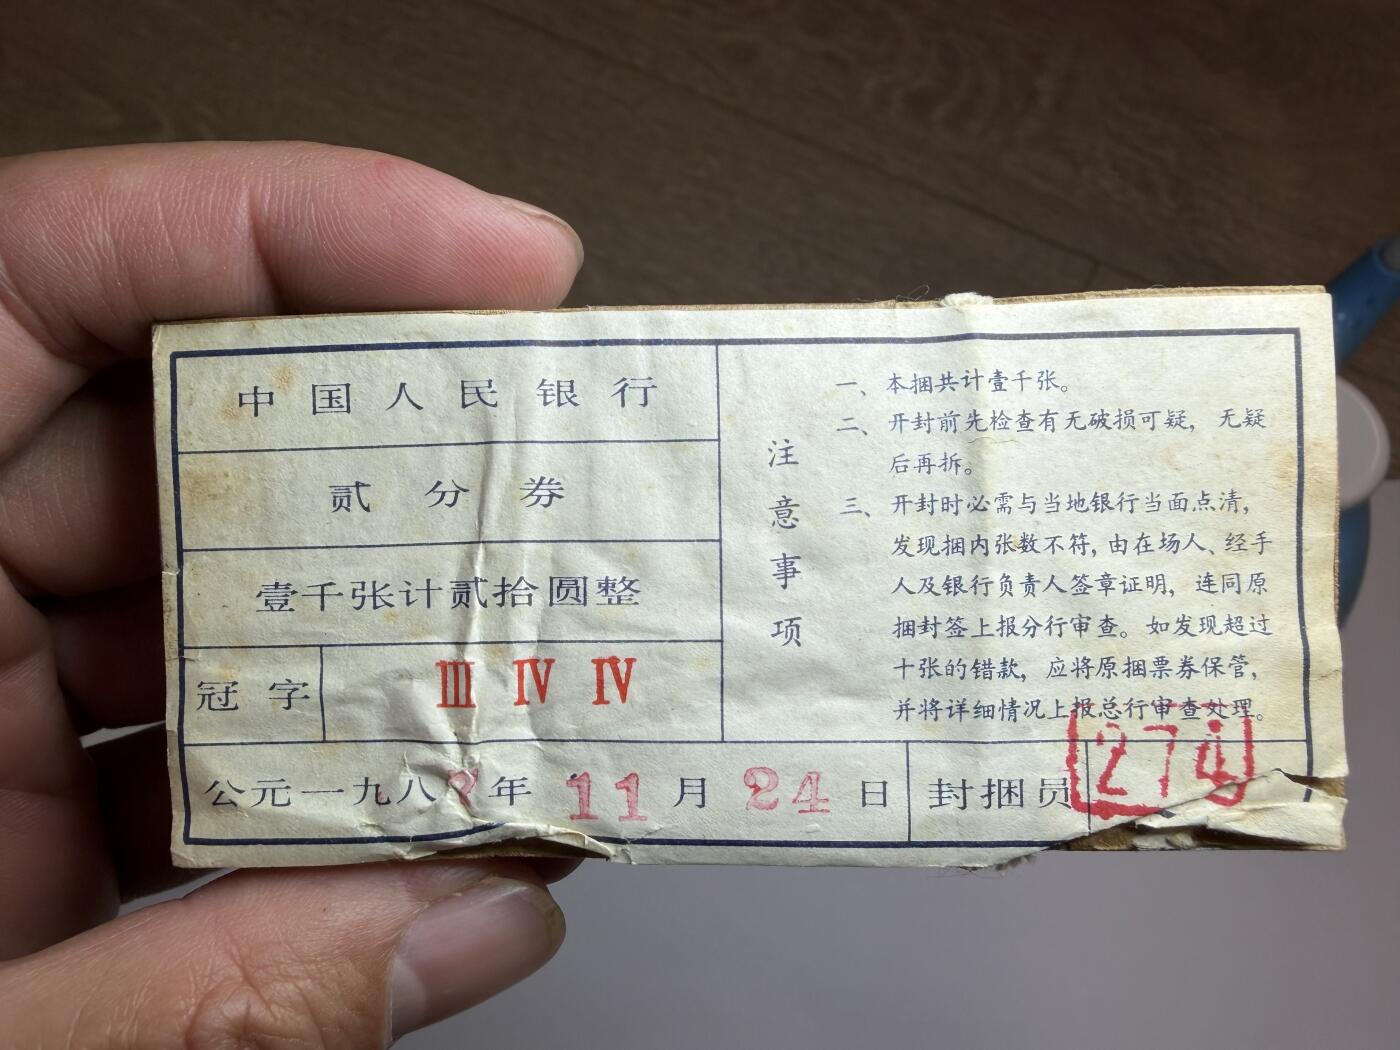 中国人民银行
贰分券
壹千张计贰拾圆整
冠字 Ⅲ Ⅳ Ⅳ
公元一九八 年 11 月 24 日 封捆员 274
注意事项
一、本捆共计壹千张。
二、开封前先检查有无破损可疑，无疑
后再拆。
三、开封时必需与当地银行当面点清，
发现捆内张数不符，由在场人、经手
人及银行负责人签章证明，连同原
捆封签上报分行审查。如发现超过
十张的错款，应将原捆票券保管，
并将详细情况上报总行审查处理。